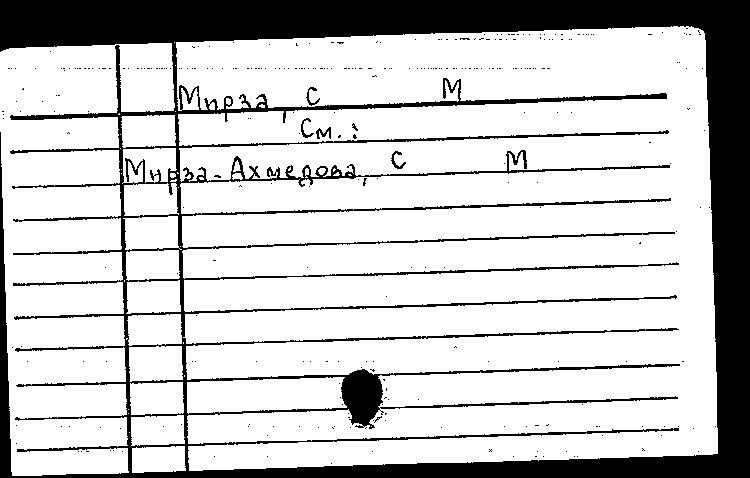 Мирза, С М
См.:
Мирза-Ахмедова, С М